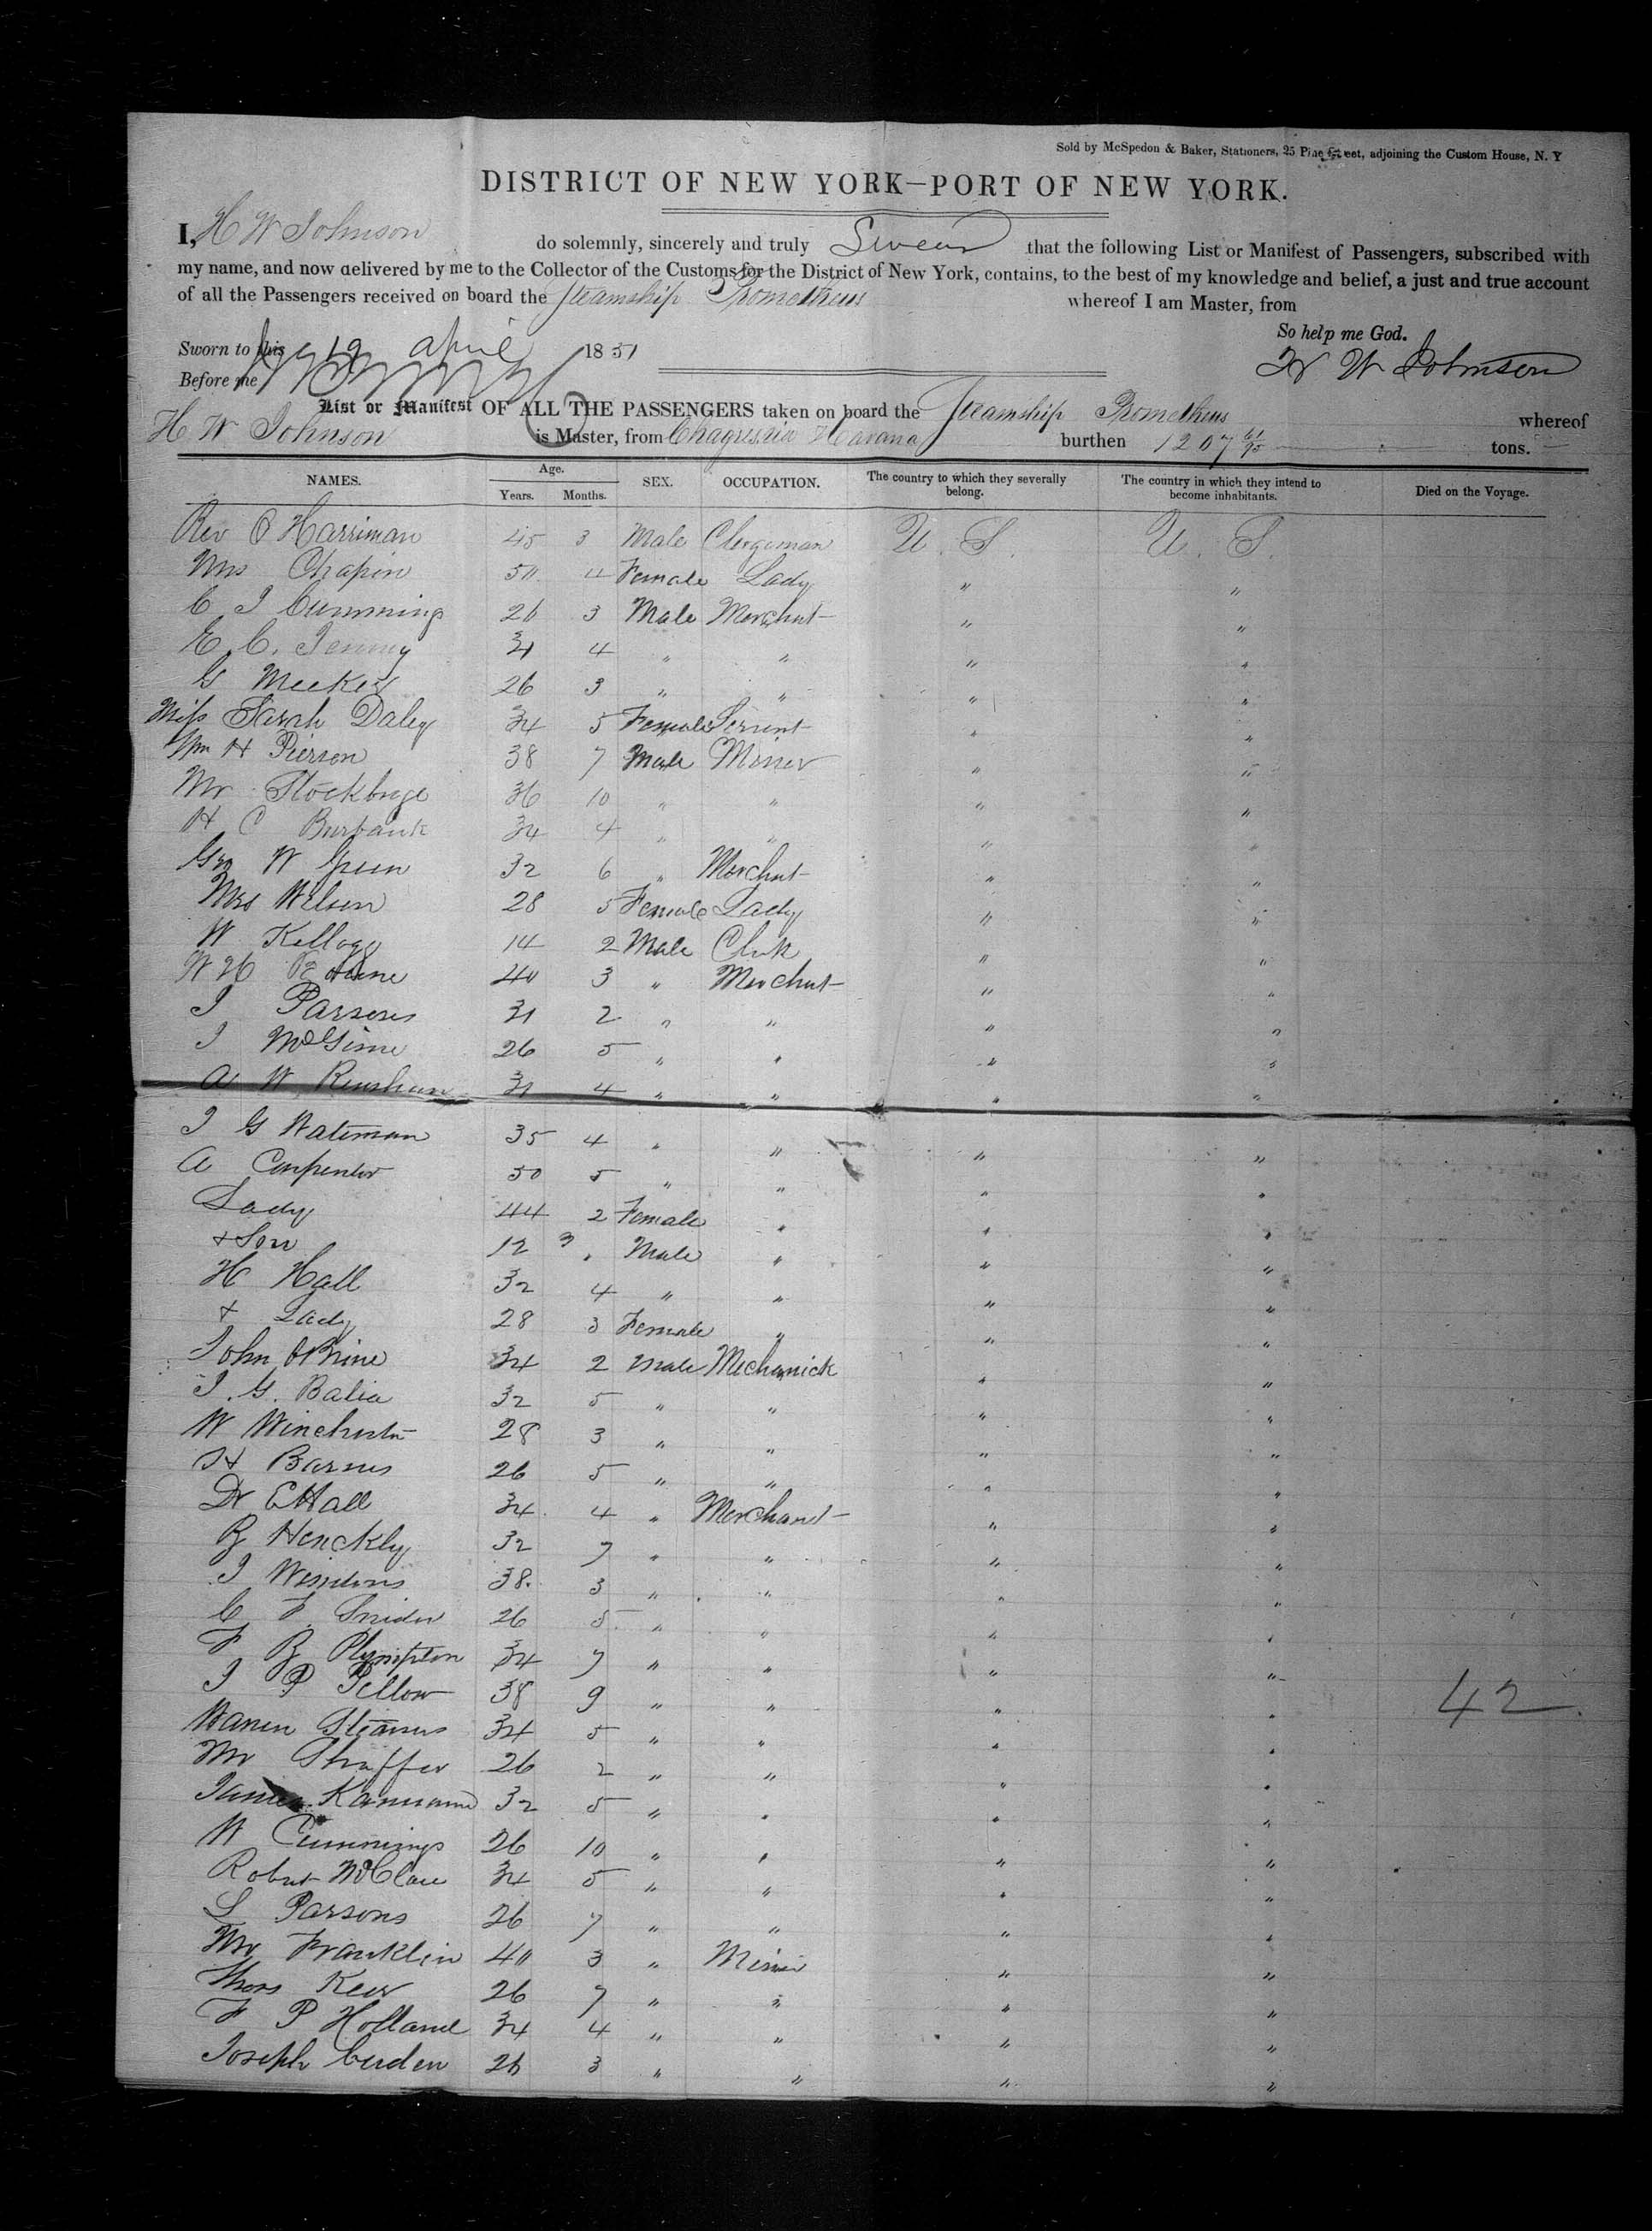 Sold by McSpedon & Baker, Stationers, 25 Pine Street, adjoining the Custom House, N. Y
DISTRICT OF NEW YORK—PORT OF NEW YORK.
I, H W Johnson do solemnly, sincerely and truly Swear that the following List or Manifest of Passengers, subscribed with
my name, and now delivered by me to the Collector of the Customs for the District of New York, contains, to the best of my knowledge and belief, a just and true account
of all the Passengers received on board the Steamship Prometheus whereof I am Master, from
So help me God.
Sworn to this 19 April 1851
H W Johnson
Before me
List or Manifest OF ALL THE PASSENGERS taken on board the Steamship Prometheus whereof
H W Johnson is Master, from Chagres via Havana burthen 1207 61/95 tons.
NAMES. Age. Years. Months. SEX. OCCUPATION. The country to which they severally belong. The country in which they intend to become inhabitants. Died on the Voyage.
Rev O Harriman 45 3 Male Clergeman U. S. U. S.
Mrs Chapin 50 4 Female Lady " "
C J Cumming 26 3 Male Merchnt " "
E. C. Jenny 31 4 " " " "
G Meeker 26 3 " " " "
Miss Sarah Daley 34 5 Female Servent " "
Wm H Pierson 38 7 Male Miner " "
Mr Stockbrige 36 10 " " " "
H C Burbank 34 4 " " " "
Geo W Green 32 6 " Merchnt " "
Mrs Wilson 28 5 Female Lady " "
W Kellogg 14 2 Male Clerk " "
W H 40 3 " Merchnt " "
J Parsons 31 2 " " " "
J 26 5 " " " "
A W Renshaw 31 4 " " " "
J G Wateman 35 4 " " " "
A Carpenter 50 5 " " " "
Lady 44 2 Female " " "
+ Son 12 3 Male " " "
H Hall 32 4 " " " "
+ Lady 28 3 Female " " "
John OBrine 34 2 Male Mechanick " "
J. G. Balia 32 5 " " " "
W Winchester 28 3 " " " "
H Barnes 26 5 " " " "
Dr E Hall 34 4 " Merchant " "
B Henckly 32 7 " " " "
J 38 3 " " " "
C F Snider 26 5 " " " "
F B Plympton 34 7 " " " "
J P Pellow 38 9 " " " "
Waren Stearns 34 5 " " " "
42
Mr Shaffer 26 2 " " " "
James 32 5 " " " "
W Cummings 26 10 " " " "
Robert McClare 34 5 " " " "
S Parsons 26 7 " " " "
Mr Franklin 40 3 " Miner " "
Thos Kew 26 7 " " " "
F P Holland 34 4 " " " "
Joseph Curden 26 3 " " " "